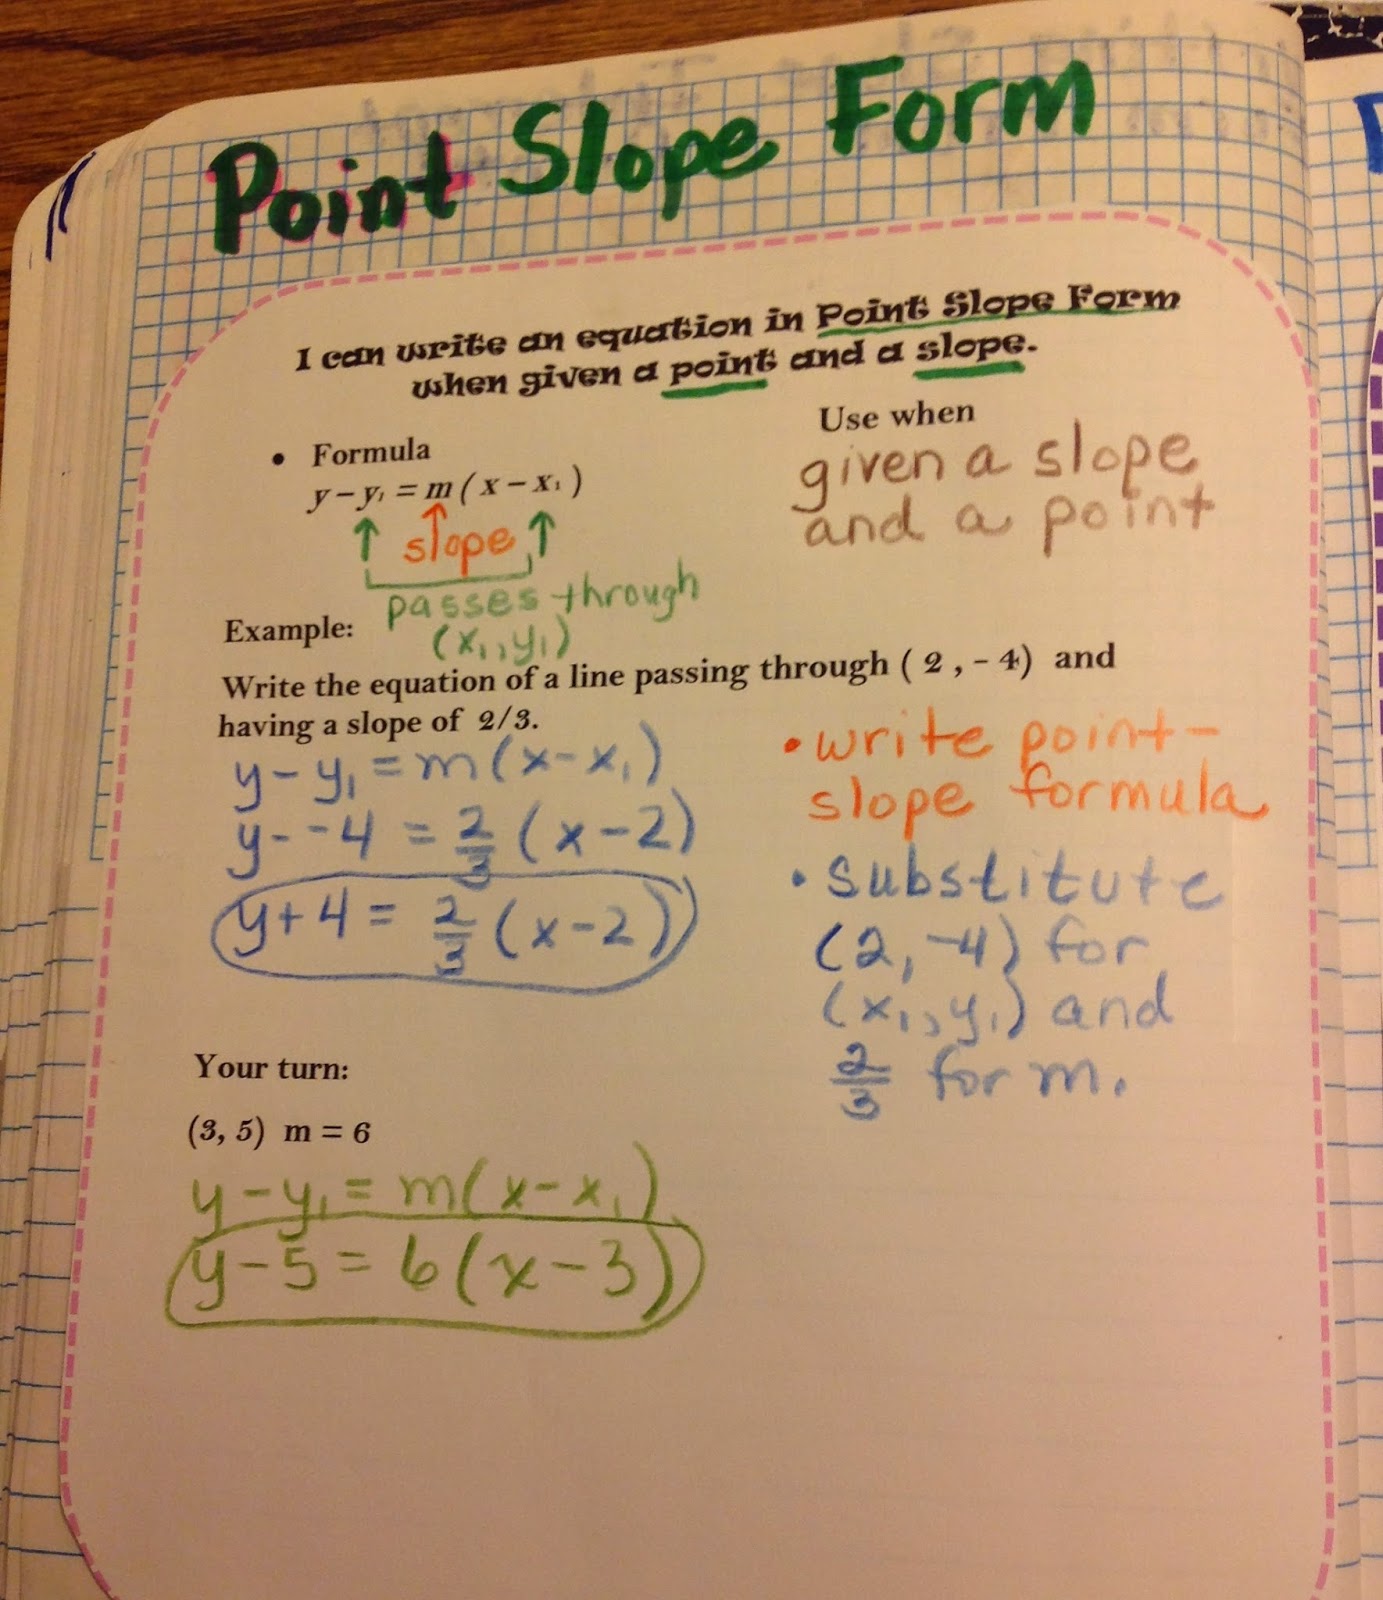 Point Slope Form
I can write an equation in Point Slope Form
when given a point and a slope.
• Formula
y – y₁ = m ( x – x₁ )
slope
passes through
(x₁, y₁)
Use when
given a slope
and a point
Example:
Write the equation of a line passing through ( 2 , - 4) and
having a slope of 2/3.
y - y₁ = m(x - x₁)
y - -4 = 2/3 (x - 2)
y + 4 = 2/3 (x - 2)
• write point-
slope formula
• substitute
(2, -4) for
(x₁, y₁) and
2/3 for m.
Your turn:
(3, 5) m = 6
y - y₁ = m(x - x₁)
y - 5 = 6(x - 3)